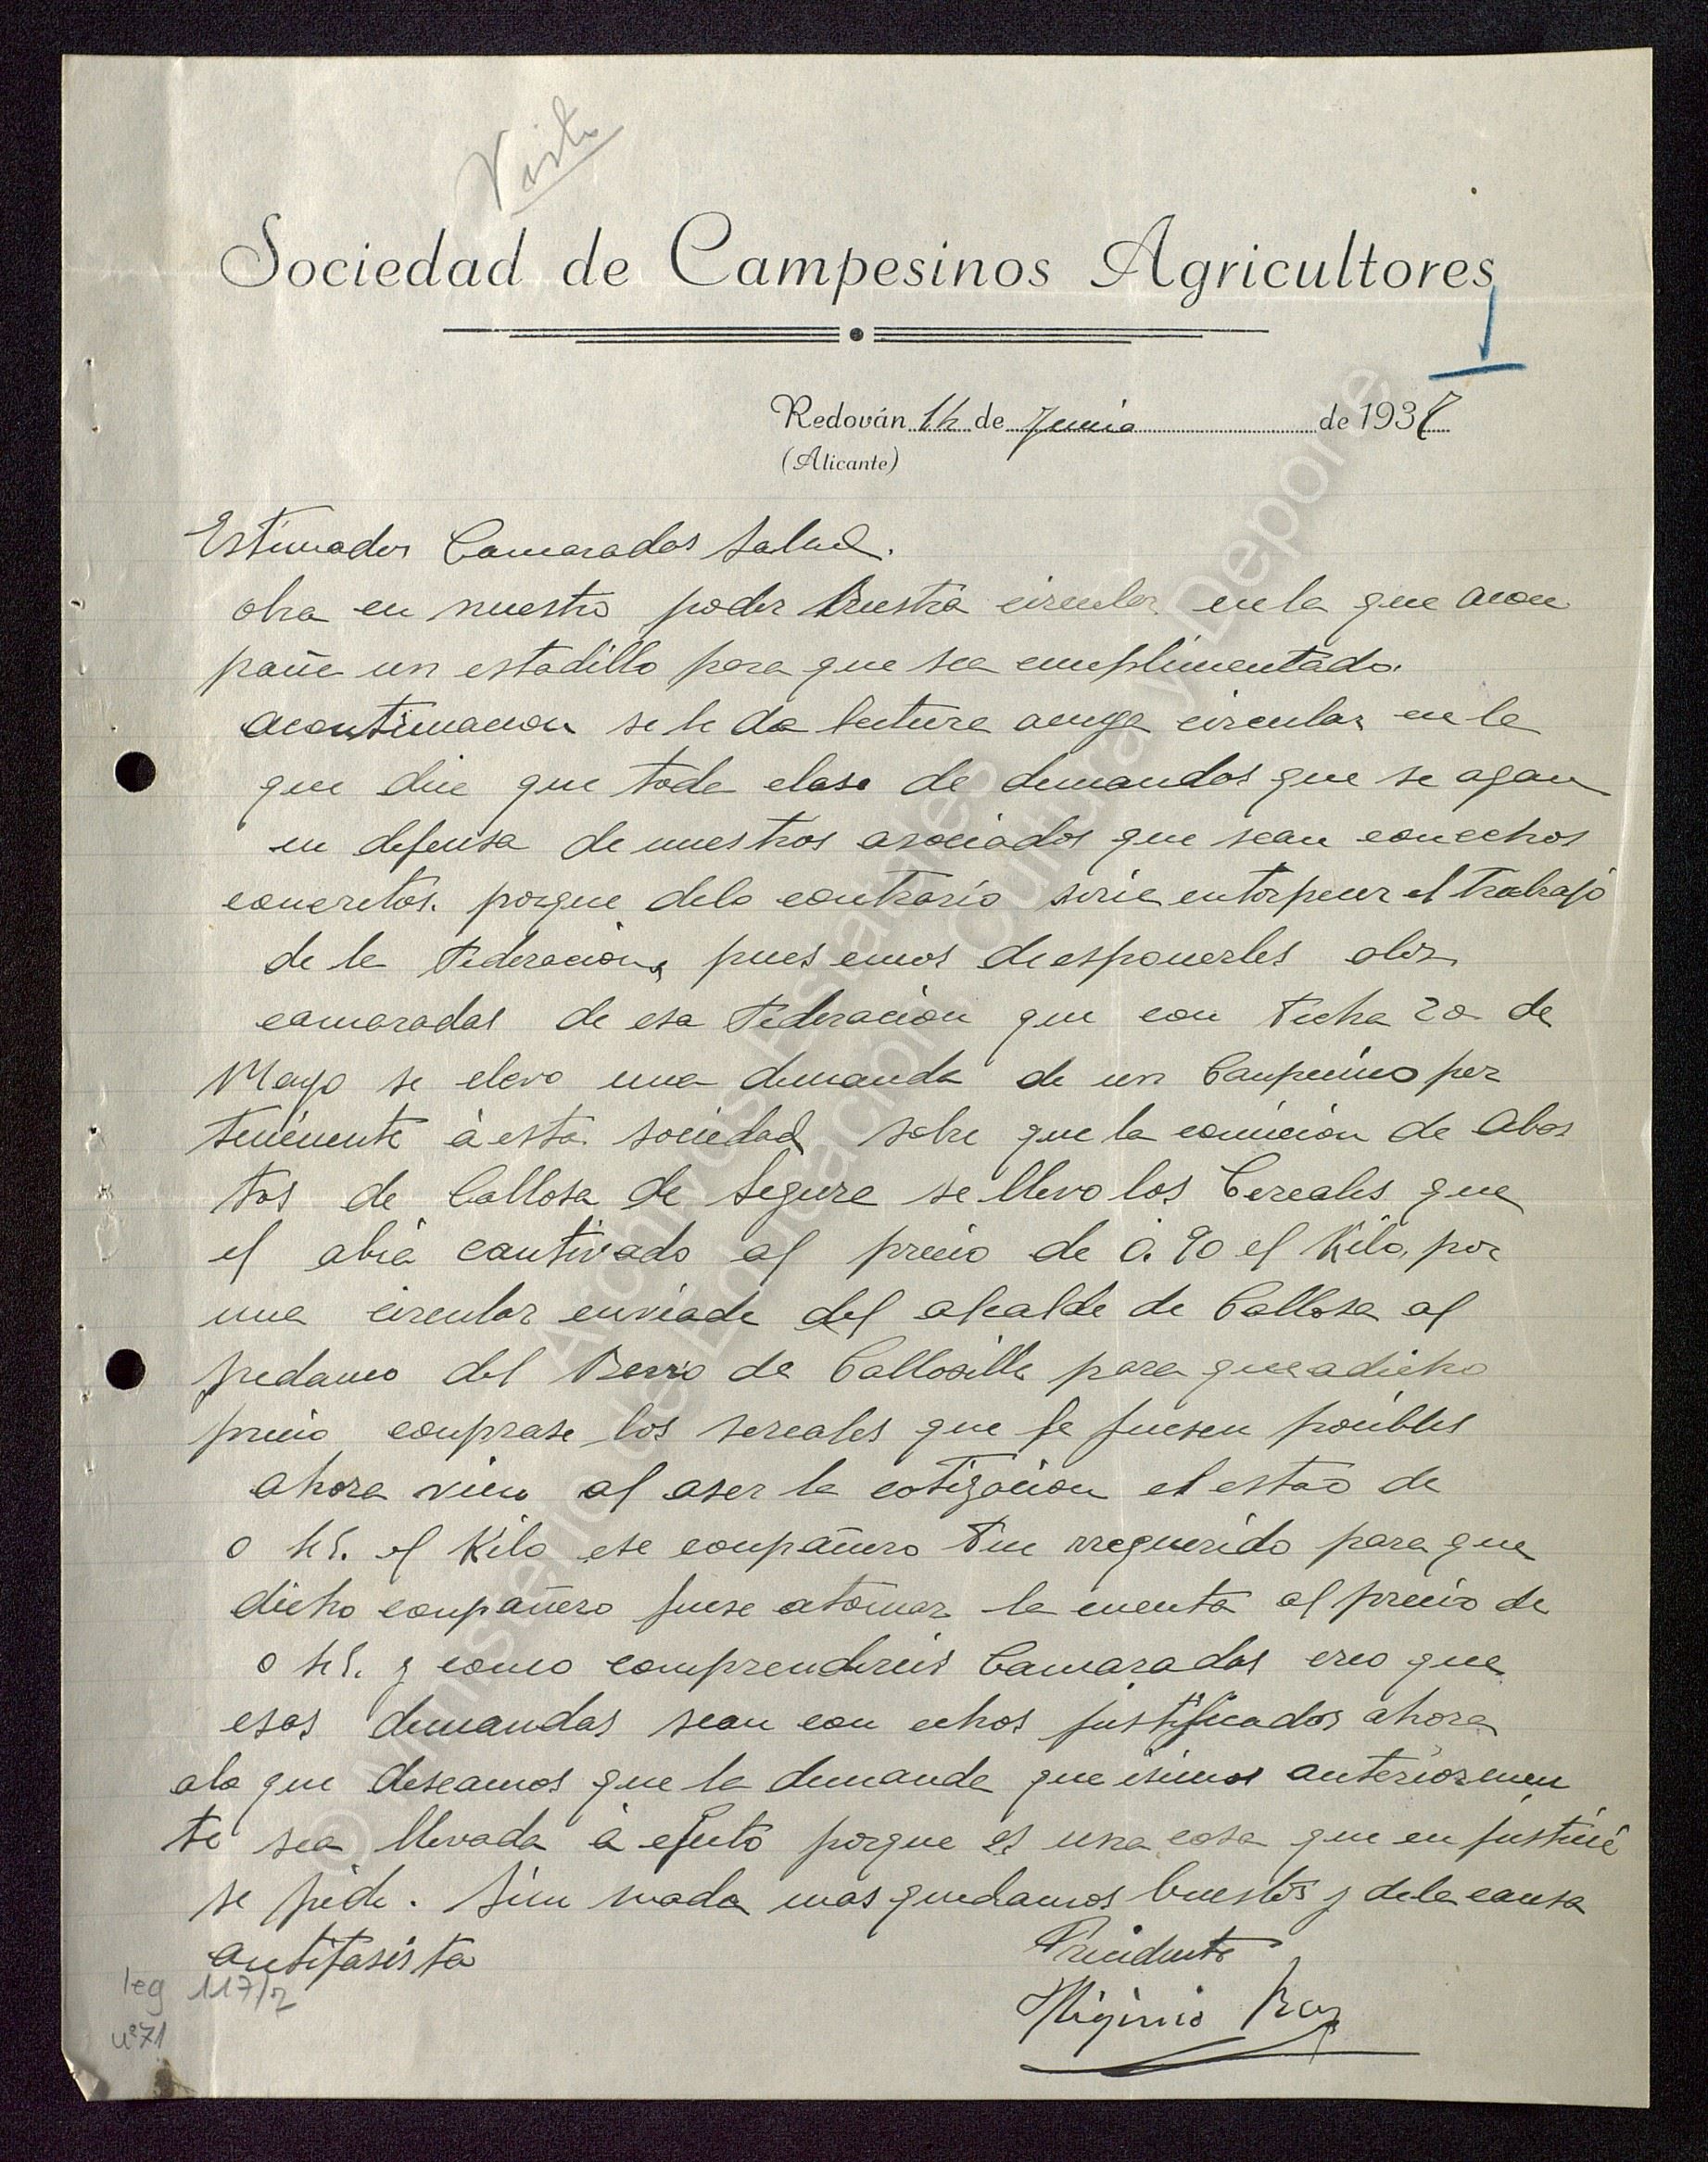 Visto
Sociedad de Campesinos Agricultores
1
Redován 14 de Junio de 1937
(Alicante)
Estimados Camaradas Salud.
obra en nuestro poder Buestra circular en la que acon
pañe un estadillo para que sea cumplimentado.
acontinuacion se le da lectura acuya circular en la
que dice que toda clase de demandas que se agan
en defensa de nuestros asociados que sean conechos
concretos. porque delo contrario serie entorpecer el trabajo
de la Federacion, pues emos de esponerles alos
camaradas de esa Federacion que con Fecha 20 de
Mayo se elevo una demanda de un Canpecino per
teneciente à esta sociedad sobre que la comicion de Abas
tos de Callosa de Segura se llevo los Cereales que
el abia cautivado al precio de 0.90 el Kilo, por
una circular enviada del alcalde de Callosa al
pedaneo del Barrio de Callosilla para que a dicho
precio conprase los sereales que le fuesen posibles
ahora vien al aser la cotizacion el estao de
0 45. el Kilo ese conpañero Fue rrequerido para que
dicho conpañero fuese atomar la cuenta al precio de
0 45. y como comprendereis Camaradas creo que
esas demandas sean con echos justificados ahora
alo que deseamos que la demanda que isimos anteriormen
te sea llevada à efecto porque es una cosa que en justicia
se pide. Sin nada mas quedamos buestros y dela causa
antifasista
Precidente
Higinio
leg 117/2
nº 71
© Ministerio de Educación, Cultura y Deporte
Archivos Estatales